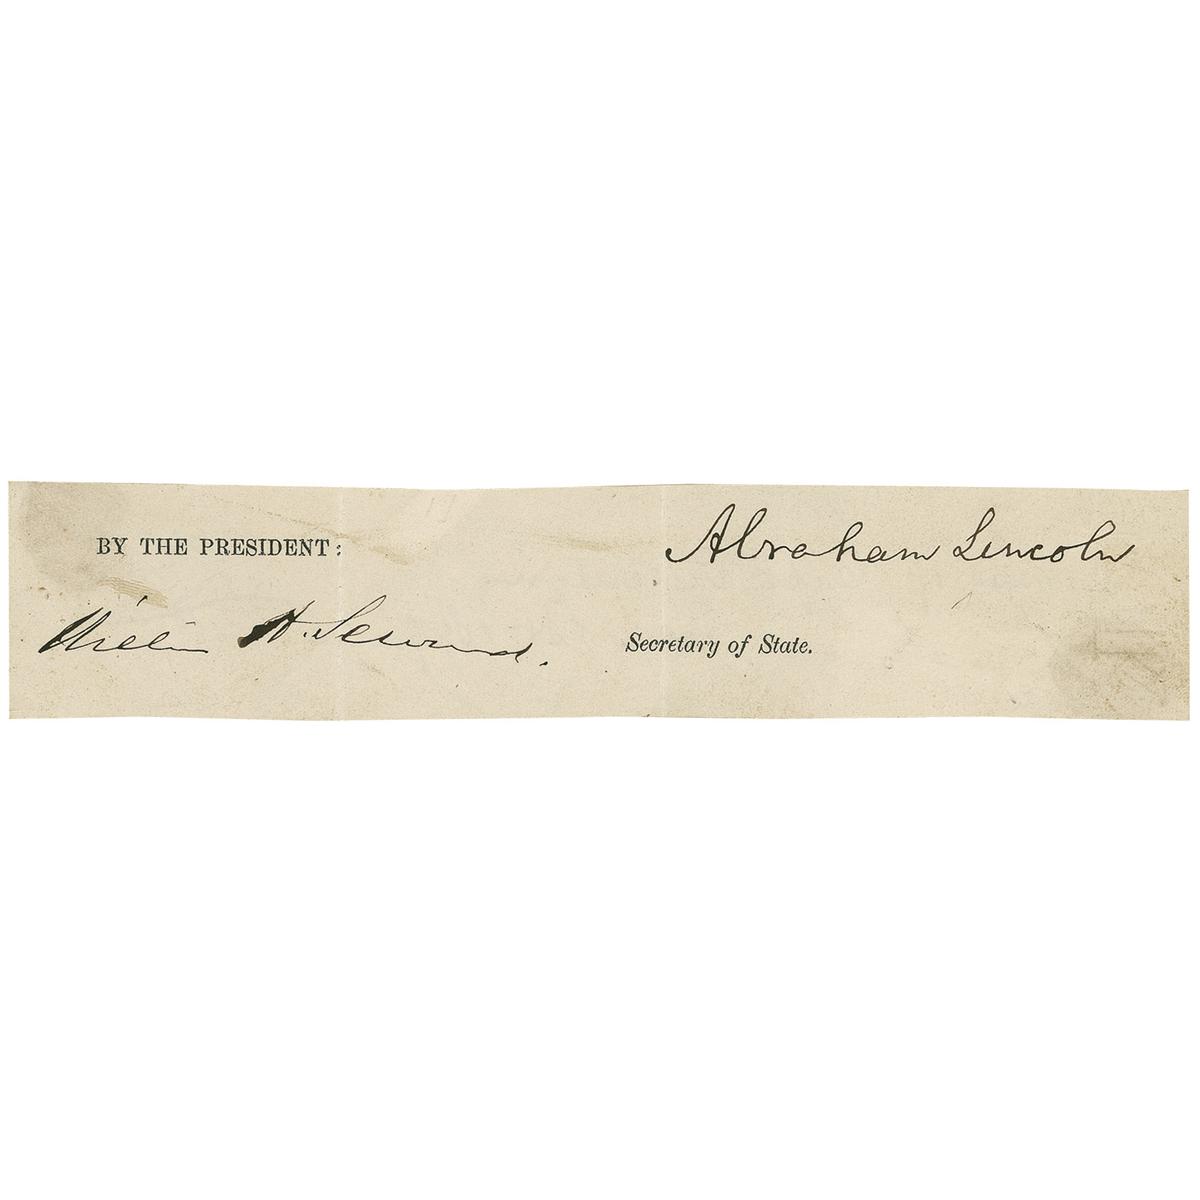 Abraham Lincoln
BY THE PRESIDENT:
William H. Seward. Secretary of State.